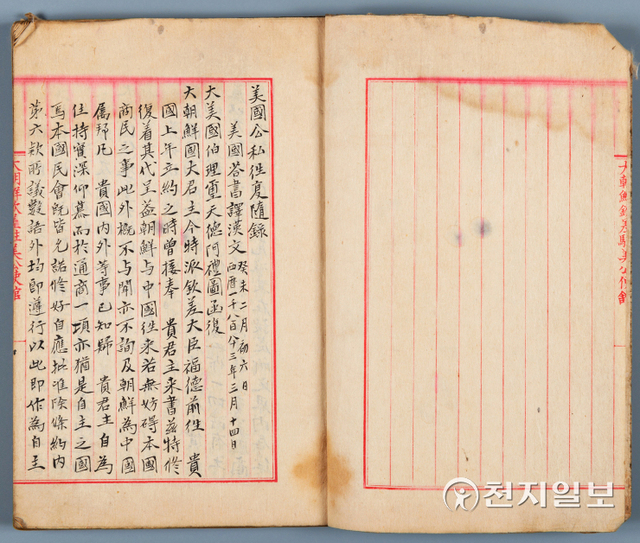 大朝鮮欽差駐美公使館
美國公私往復隨錄
美國答書譯漢文 癸未二月初六日
西曆一千八百八十三年三月十四日
大美國伯理璽天德阿禮圖函復
大朝鮮國大君主今特派欽差大臣福德前往 貴
國上年立約之時曾接奉 貴君主来書茲特修
復着其代呈益朝鮮与中國往来若無妨碍本國
商民之事此外概不与聞亦不詢及朝鮮為中國
屬邦凡 貴國内外等事已知歸 貴君主自為
住持實深仰慕而於通商一項亦猶是自主之國
焉本國民會旣皆允諾修好自應批准除條約内
第六款所議數語外均即遵行以此即作為自主
大朝鮮欽差駐美公使館
천지일보